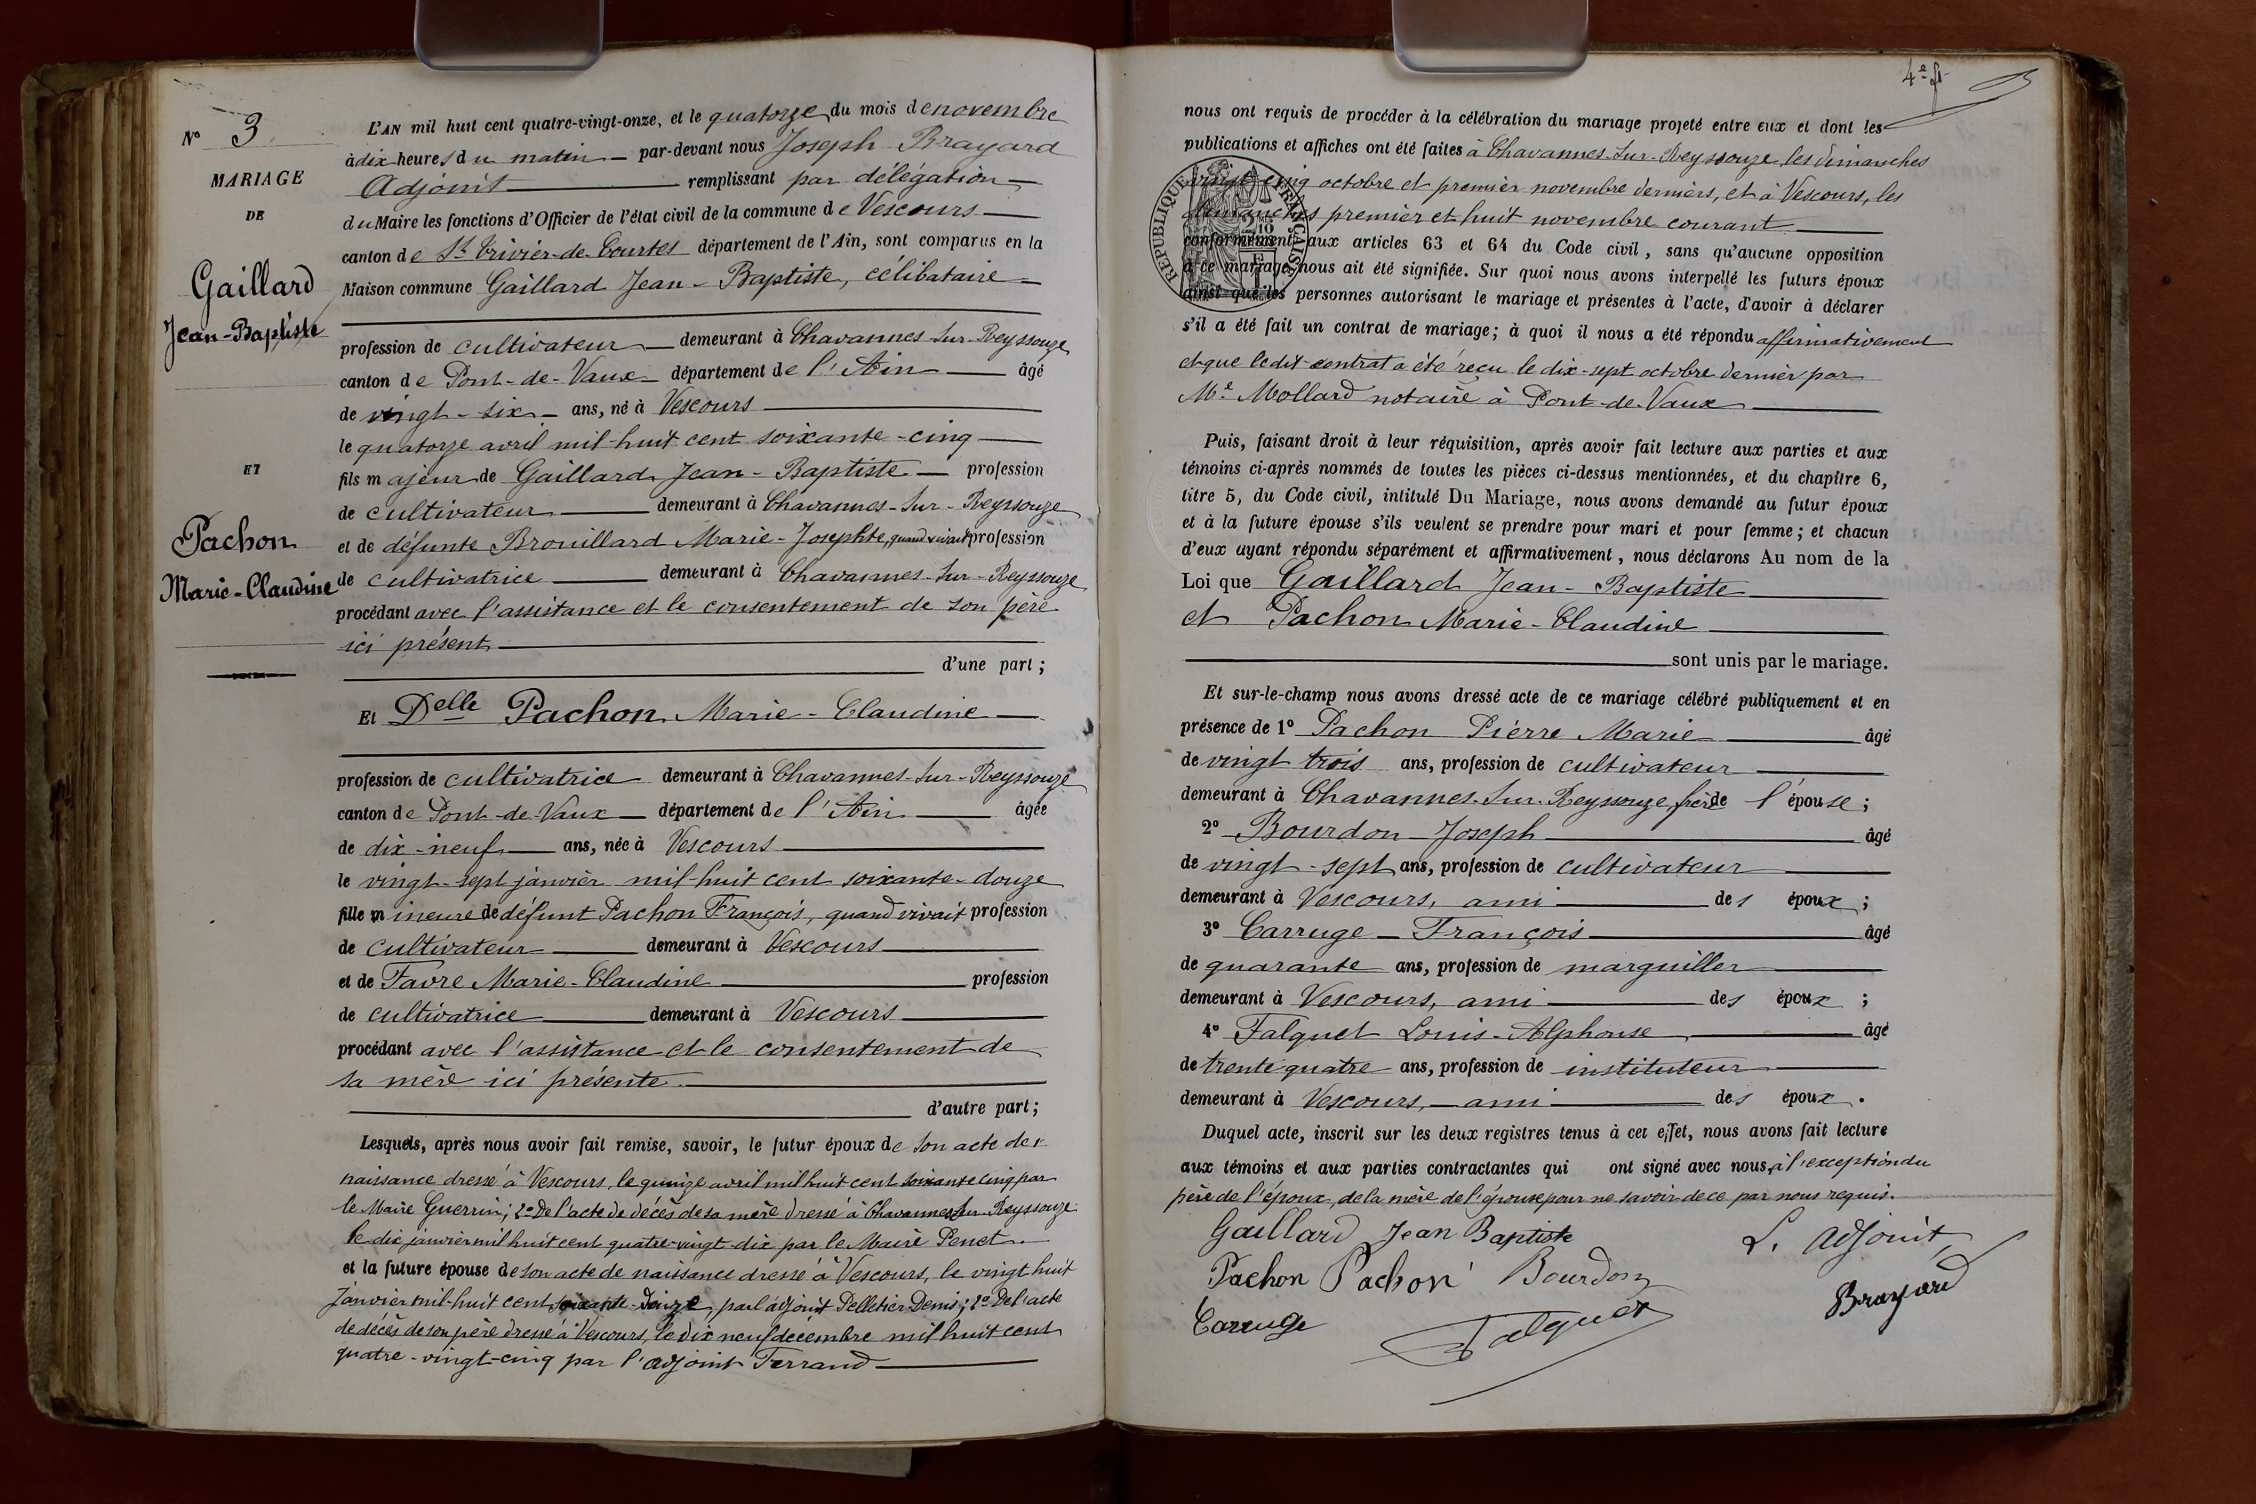 N° 3
MARIAGE
DE
Gaillard
Jean-Baptiste
ET
Pachon
Marie-Claudine
L'AN mil huit cent quatre-vingt-onze, et le quatorze du mois de novembre
à dix heures du matin par-devant nous Joseph Brayard
Adjoint remplissant par délégation
du Maire les fonctions d'Officier de l'état civil de la commune de Vescours
canton de St Trivier-de-Courtes département de l'Ain, sont comparus en la
Maison commune Gaillard Jean-Baptiste, célibataire
profession de cultivateur demeurant à Chavannes-sur-Reyssouze
canton de Pont-de-Vaux département de l'Ain âgé
de vingt-six ans, né à Vescours
le quatorze avril mil-huit cent soixante-cinq
fils majeur de Gaillard Jean-Baptiste profession
de cultivateur demeurant à Chavannes-sur-Reyssouze
et de défunte Brouillard Marie-Josephte, quand vivait profession
de cultivatrice demeurant à Chavannes-sur-Reyssouze
procédant avec l'assistance et le consentement de son père
ici présent
d'une part;
Et Delle Pachon Marie-Claudine
profession de cultivatrice demeurant à Chavannes-sur-Reyssouze
canton de Pont-de-Vaux département de l'Ain âgée
de dix-neuf ans, née à Vescours
le vingt-sept janvier mil-huit cent soixante-douze
fille mineure de défunt Pachon François, quand vivait profession
de cultivateur demeurant à Vescours
et de Favre Marie-Claudine profession
de cultivatrice demeurant à Vescours
procédant avec l'assistance et le consentement de
sa mère ici présente.
d'autre part;
Lesquels, après nous avoir fait remise, savoir, le futur époux de son acte de
naissance dressé à Vescours, le quinze avril mil huit cent soixante cinq par
le Maire Guerrin; 2° De l'acte de décès de sa mère dressé à Chavannes-sur-Reyssouze
le dix janvier mil huit cent quatre-vingt-dix par le Maire Penet
et la future épouse de son acte de naissance dressé à Vescours, le vingt huit
janvier mil-huit cent soixante-douze, par l'adjoint Pelletier Denis; 2° De l'acte
de décès de son père dressé à Vescours, le dix neuf décembre mil huit cent
quatre-vingt-cinq par l'adjoint Ferrand
4e ft
nous ont requis de procéder à la célébration du mariage projeté entre eux et dont les
publications et affiches ont été faites à Chavannes-sur-Reyssouze, les dimanches
vingt cinq octobre et premier novembre derniers, et à Vescours, les
dimanches premier et huit novembre courant
conformément aux articles 63 et 64 du Code civil, sans qu'aucune opposition
à ce mariage nous ait été signifiée. Sur quoi nous avons interpellé les futurs époux
ainsi que les personnes autorisant le mariage et présentes à l'acte, d'avoir à déclarer
s'il a été fait un contrat de mariage; à quoi il nous a été répondu affirmativement
et que ledit contrat a été reçu le dix-sept octobre dernier par
Me Mollard notaire à Pont-de-Vaux
RÉPUBLIQUE FRANÇAISE
Puis, faisant droit à leur réquisition, après avoir fait lecture aux parties et aux
témoins ci-après nommés de toutes les pièces ci-dessus mentionnées, et du chapitre 6,
titre 5, du Code civil, intitulé Du Mariage, nous avons demandé au futur époux
et à la future épouse s'ils veulent se prendre pour mari et pour femme; et chacun
d'eux ayant répondu séparément et affirmativement, nous déclarons Au nom de la
Loi que Gaillard Jean-Baptiste
et Pachon Marie-Claudine
sont unis par le mariage.
Et sur-le-champ nous avons dressé acte de ce mariage célébré publiquement et en
présence de 1° Pachon Pierre Marie âgé
de vingt trois ans, profession de cultivateur
demeurant à Chavannes-sur-Reyssouze, frère de l'épouse;
2° Bourdon Joseph âgé
de vingt-sept ans, profession de cultivateur
demeurant à Vescours, ami des époux;
3° Carruge François âgé
de quarante ans, profession de marguiller
demeurant à Vescours, ami des époux;
4° Falquet Louis-Alphonse âgé
de trente quatre ans, profession de instituteur
demeurant à Vescours, ami des époux.
Duquel acte, inscrit sur les deux registres tenus à cet effet, nous avons fait lecture
aux témoins et aux parties contractantes qui ont signé avec nous, à l'exception du
père de l'époux, de la mère de l'épouse pour ne savoir de ce par nous requis.
Gaillard Jean Baptiste L. Adjoint
Pachon Pachon Bourdon Brayard
Carruge Falquet